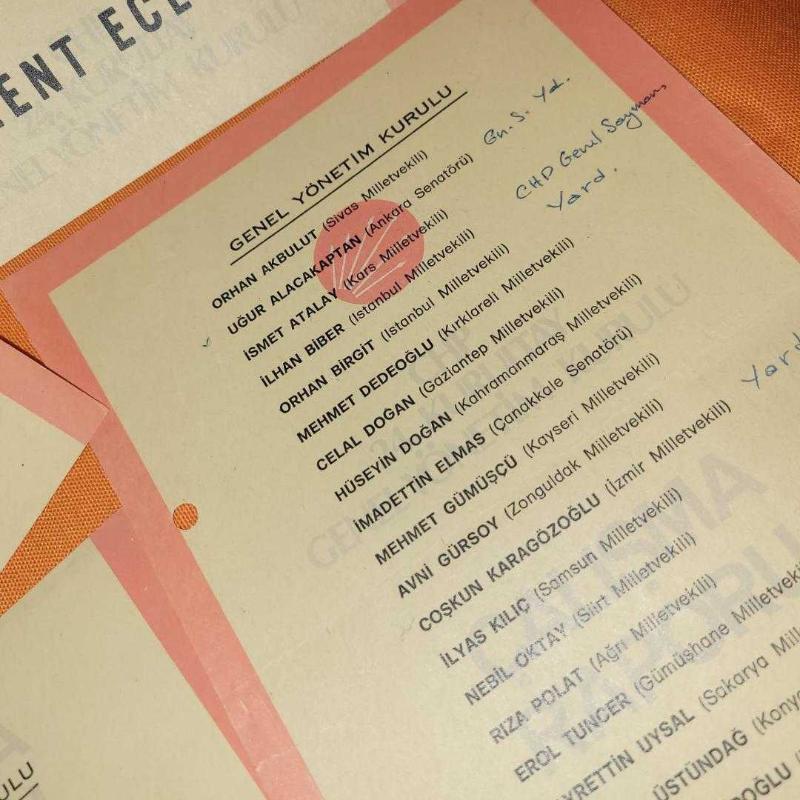 ENT ECE
GENEL YÖNETİM KURULU
ORHAN AKBULUT (Sivas Milletvekili) Gn. S. Yd.
UĞUR ALACAKAPTAN (Ankara Senatörü) CHP Genel Sayman
Yard.
İSMET ATALAY (Kars Milletvekili)
İLHAN BİBER (İstanbul Milletvekili)
ORHAN BİRGİT (İstanbul Milletvekili)
MEHMET DEDEOĞLU (Kırklareli Milletvekili)
CELAL DOĞAN (Gaziantep Milletvekili)
HÜSEYİN DOĞAN (Kahramanmaraş Milletvekili)
İMADETTİN ELMAS (Çanakkale Senatörü)
MEHMET GÜMÜŞÇÜ (Kayseri Milletvekili)
AVNİ GÜRSOY (Zonguldak Milletvekili) Yard
COŞKUN KARAGÖZOĞLU (İzmir Milletvekili)
İLYAS KILIÇ (Samsun Milletvekili)
NEBİL OKTAY (Siirt Milletvekili)
RIZA POLAT (Ağrı Milletvekili)
EROL TUNCER (Gümüşhane Milletveki
YRETTİN UYSAL (Sakarya Mill
ÜSTÜNDAĞ (Konya
OĞLU (
ULU